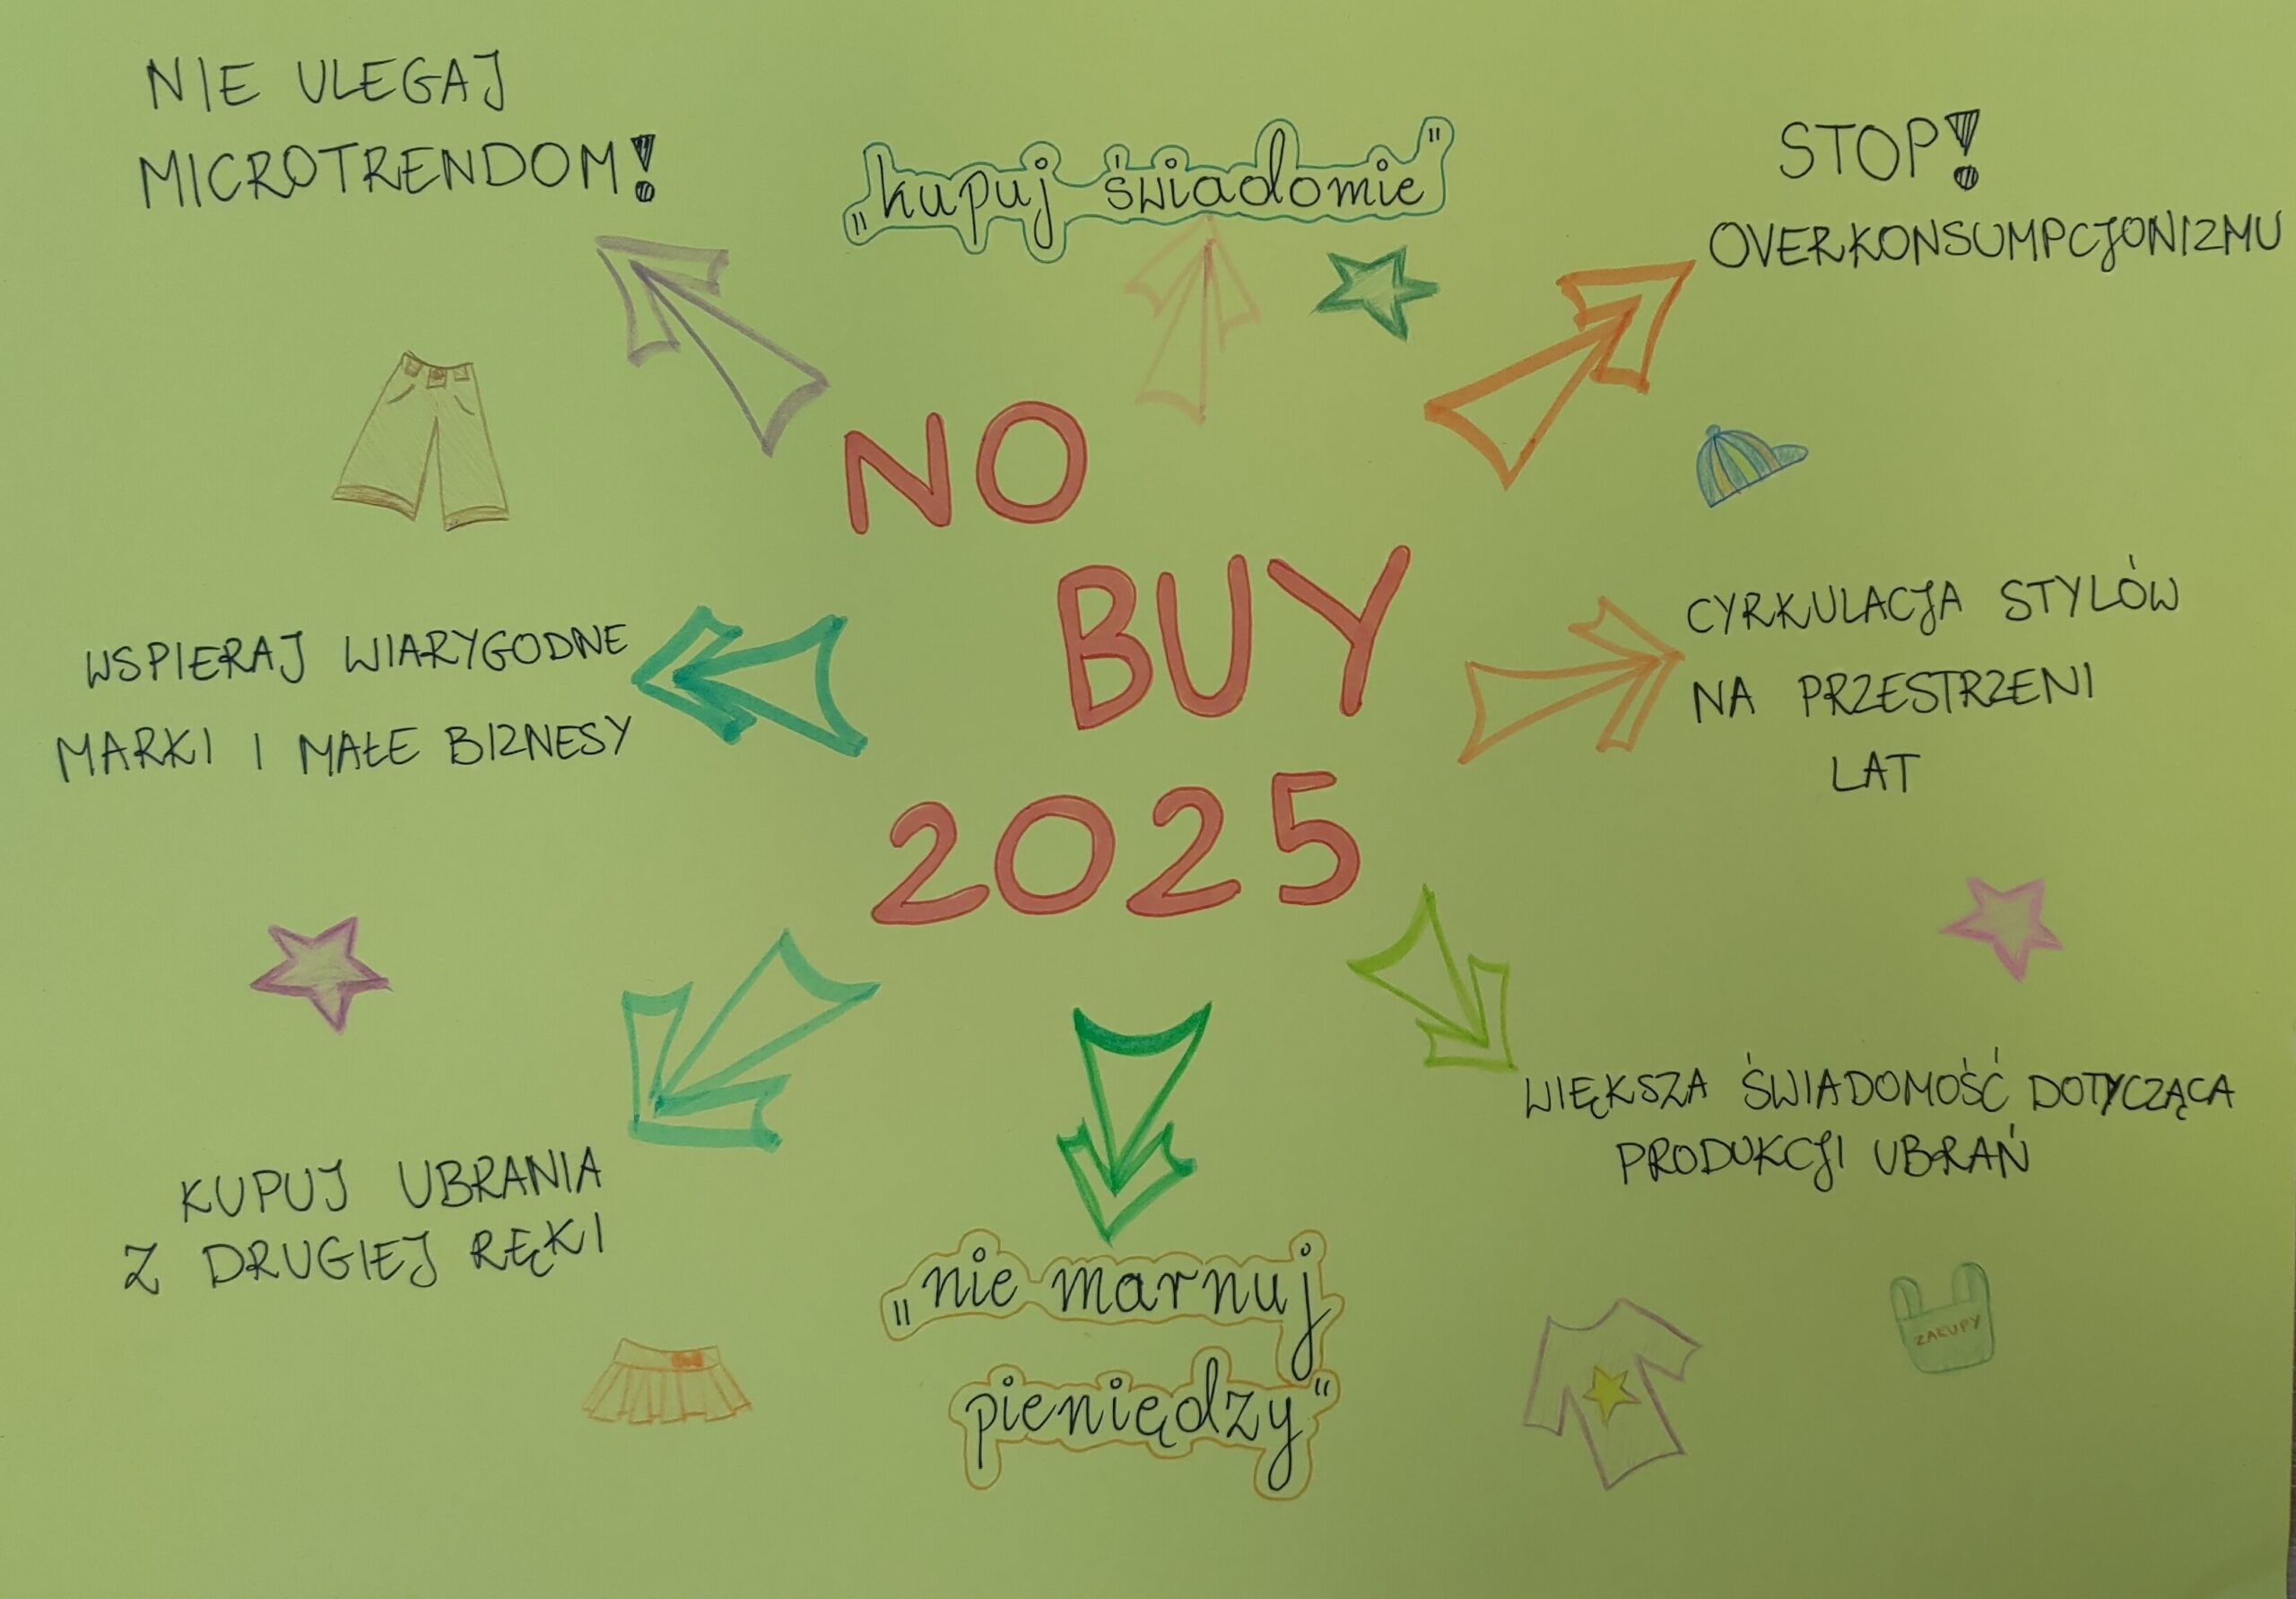 NIE ULEGAJ
MICROTRENDOM!
„kupuj świadomie"
STOP!
OVERKONSUMPCJONIZMU
NO
BUY
2025
WSPIERAJ WIARYGODNE
MARKI I MAŁE BIZNESY
CYRKULACJA STYLÓW
NA PRZESTRZENI
LAT
KUPUJ UBRANIA
Z DRUGIEJ RĘKI
„nie marnuj
pieniędzy"
WIĘKSZA ŚWIADOMOŚĆ DOTYCZĄCA
PRODUKCJI UBRAŃ
ZAKUPY